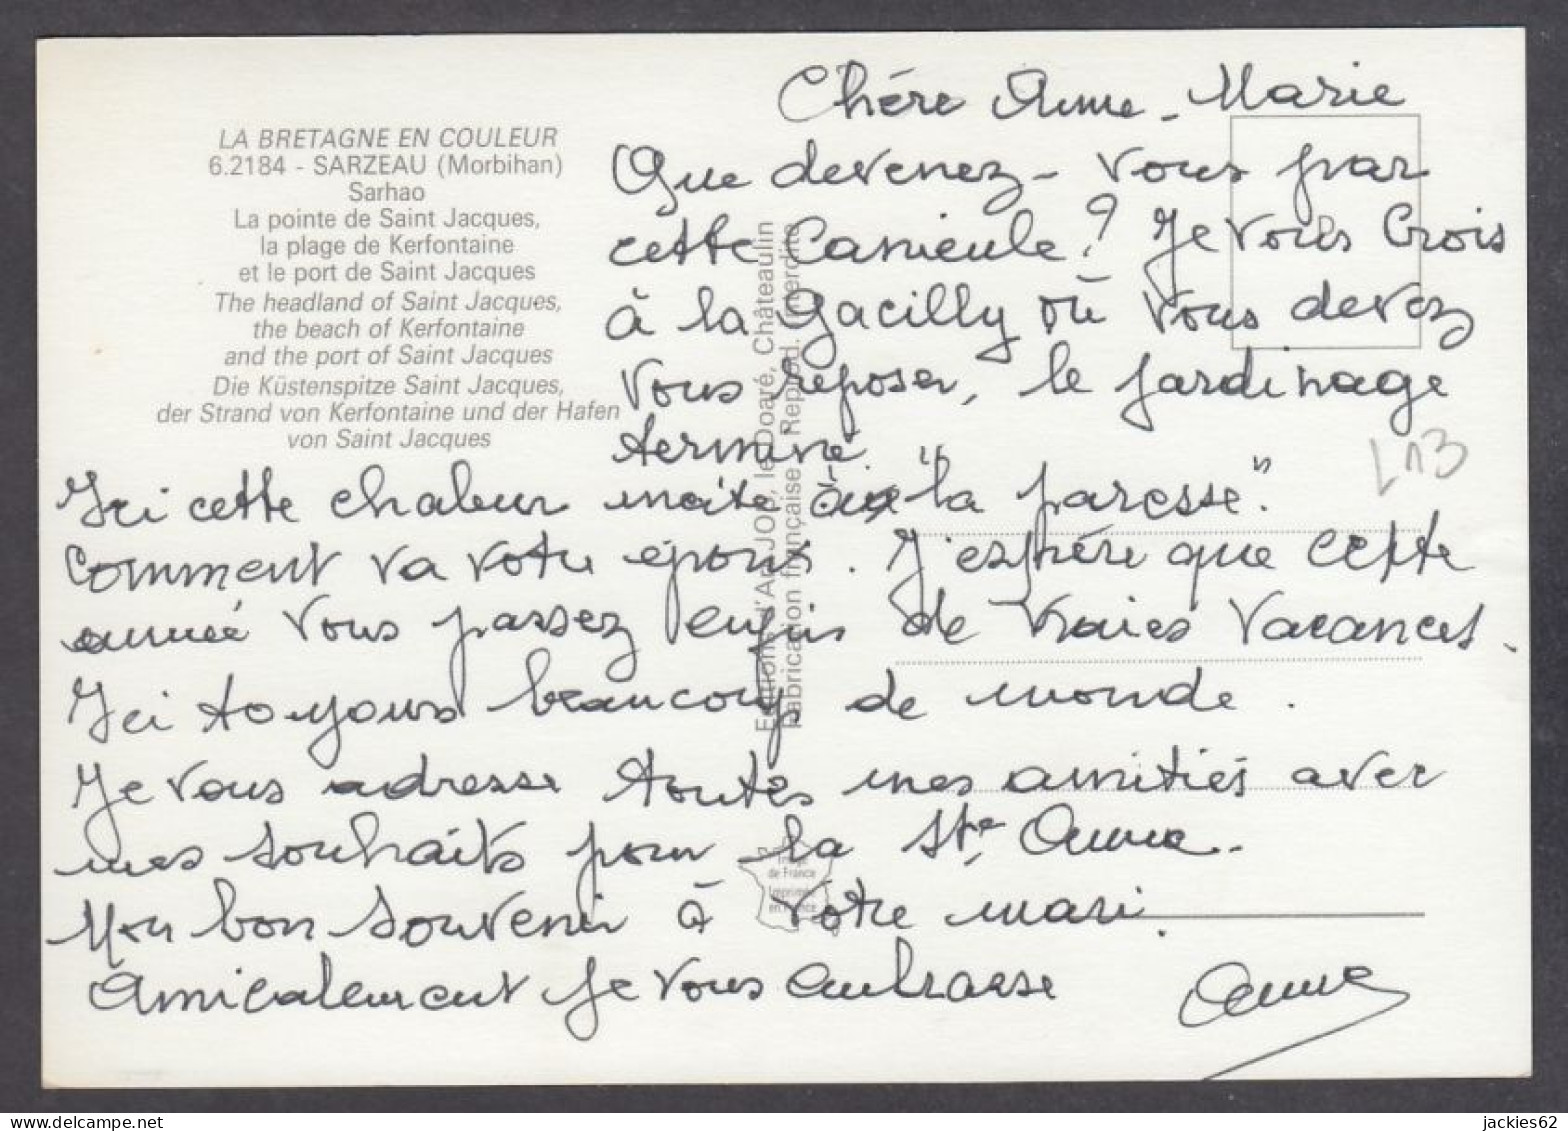 LA BRETAGNE EN COULEUR
6.2184 - SARZEAU (Morbihan)
Sarhao
La pointe de Saint Jacques,
la plage de Kerfontaine
et le port de Saint Jacques
The headland of Saint Jacques,
the beach of Kerfontaine
and the port of Saint Jacques
Die Küstenspitze Saint Jacques,
der Strand von Kerfontaine und der Hafen
von Saint Jacques
Chère Anne-Marie
Que devenez-vous par
cette Canicule? Je vous Crois
à la Gacilly où vous devez
vous reposer, le jardinage
terminé.
Ici cette chaleur incite à "la paresse".
Comment va votre époux. J'espère que cette
année vous passez enfin de vraies vacances.
Ici toujours beaucoup de monde.
Je vous adresse toutes mes amitiés avec
mes souhaits pour la Ste Anne.
Mon bon souvenir à votre mari.
Amicalement je vous embrasse
Anne
LN3
Editions d'Art JOP, le Doaré, Châteaulin
Fabrication française - Reprod. interdite
de France
Imprimé
en
jackies62